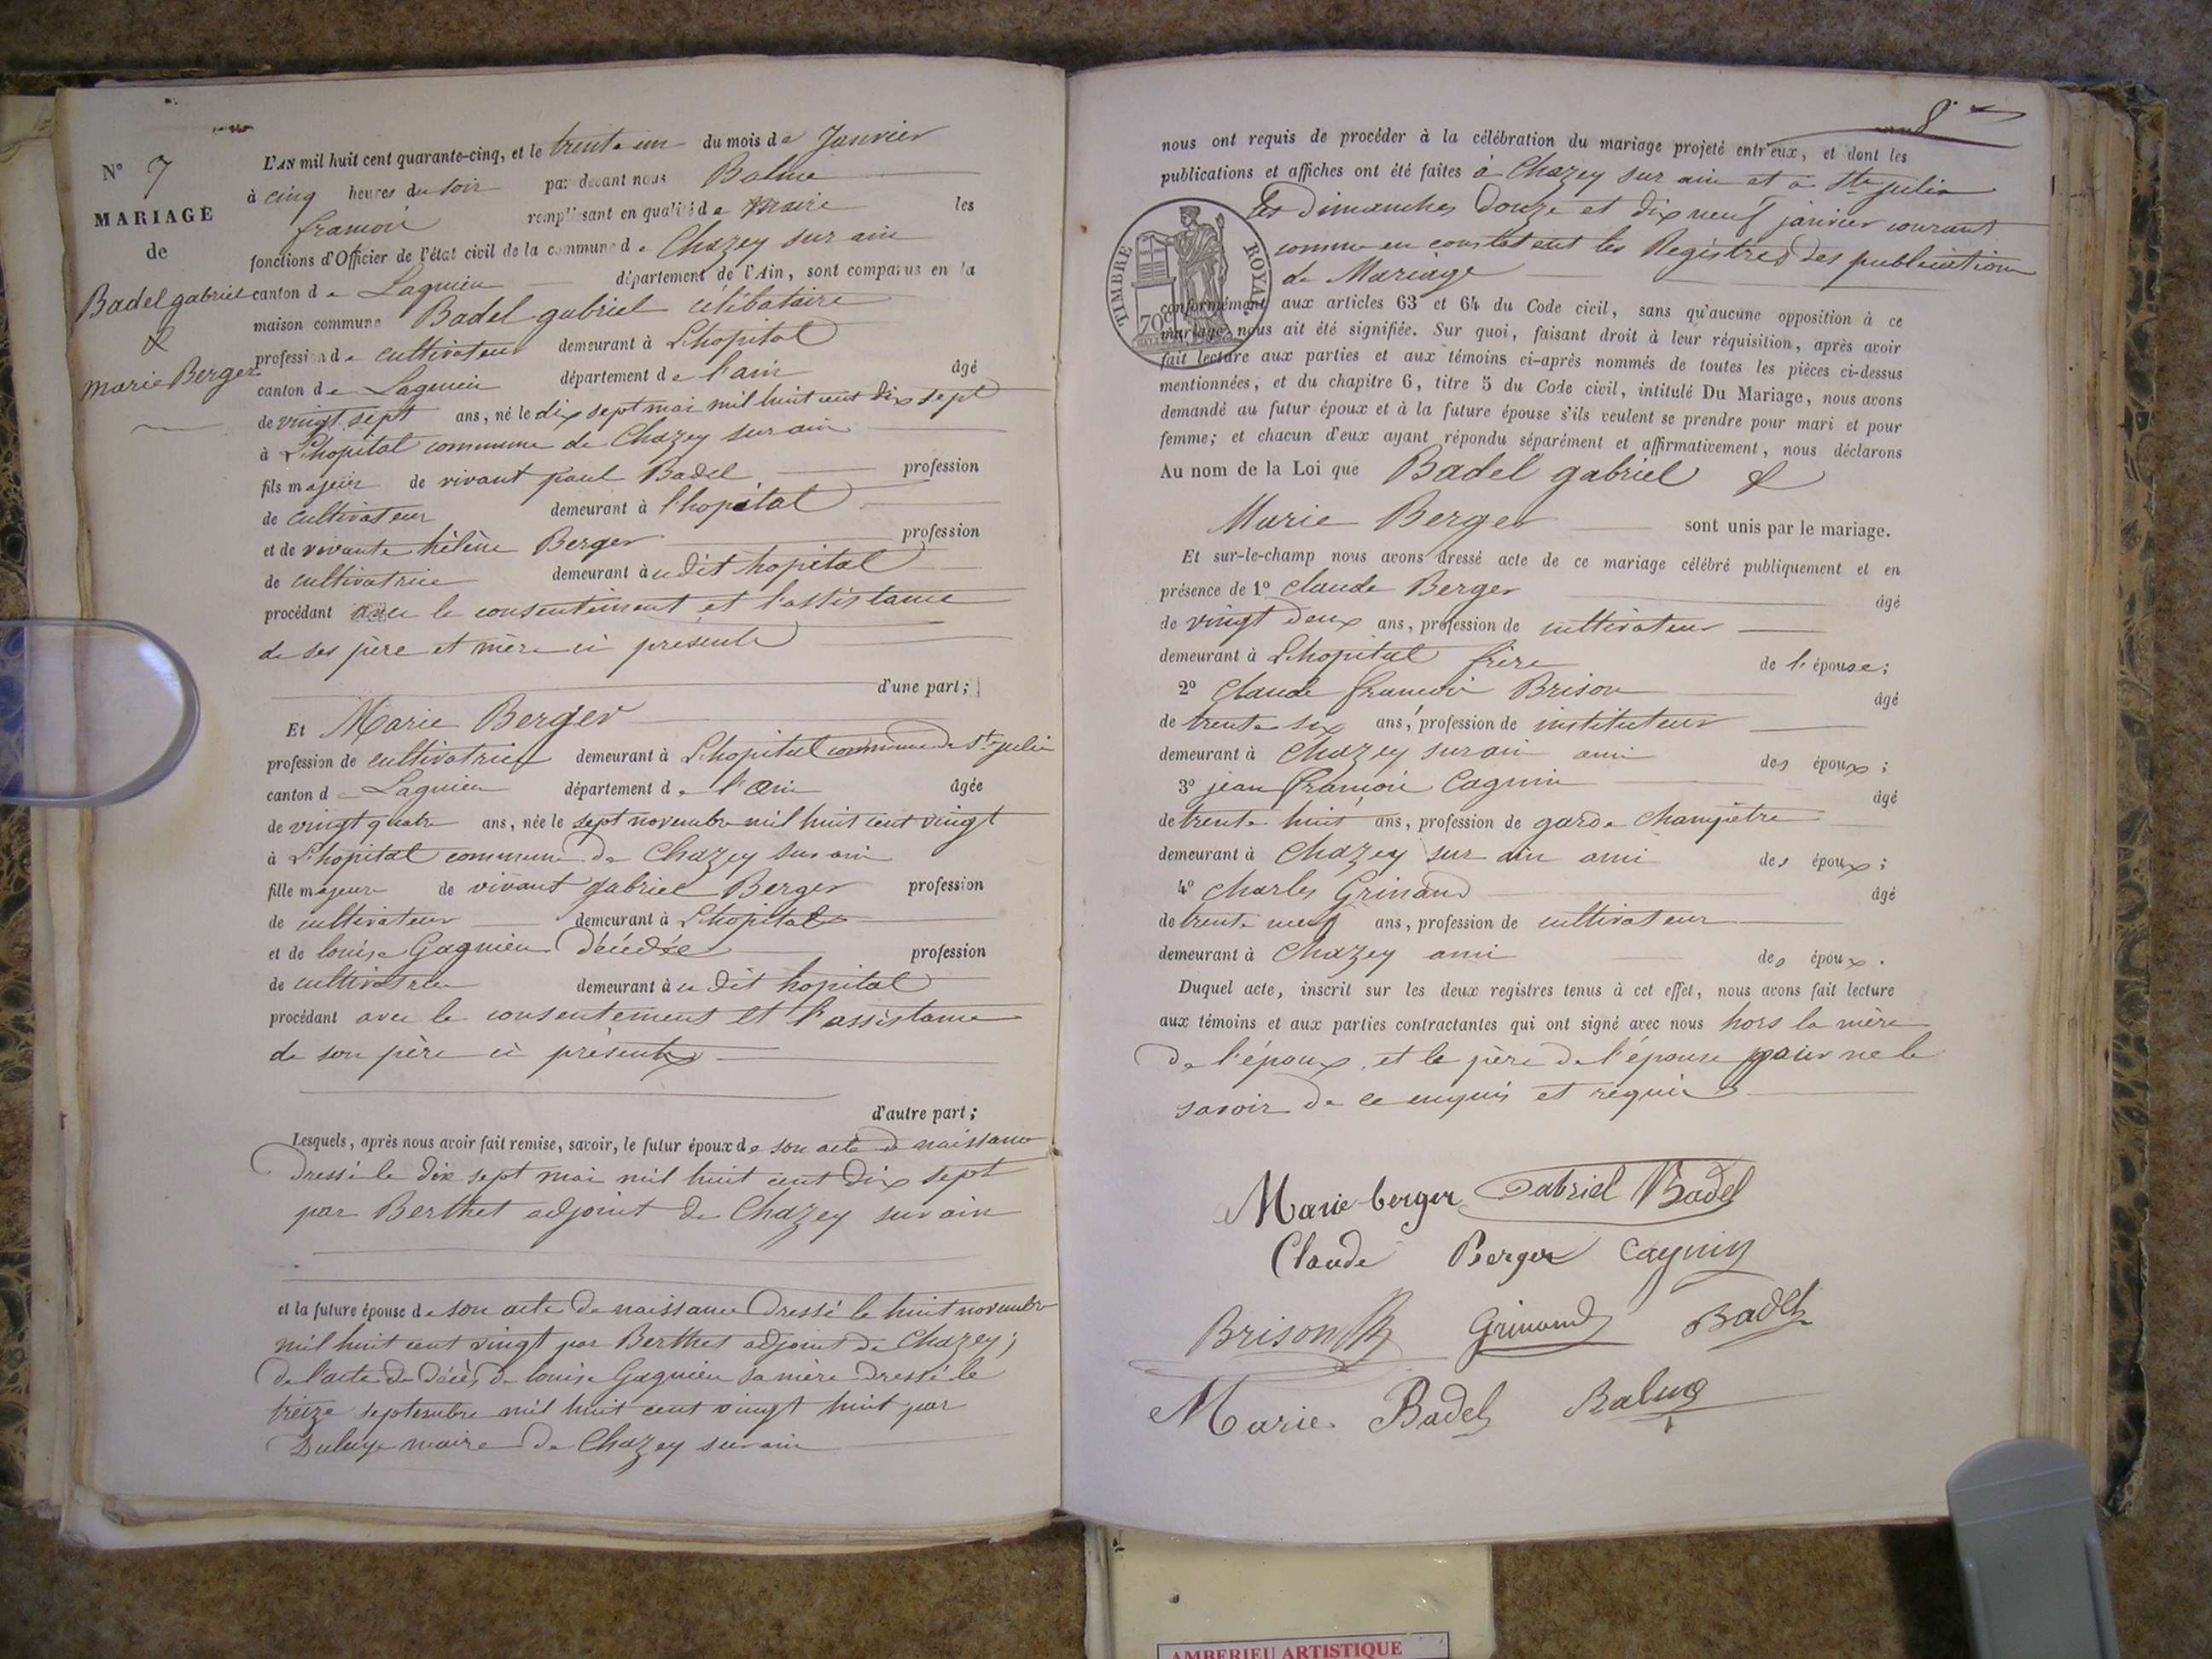 N° 7
MARIAGE
de
Badel gabriel
&
marie Berger
L'AN mil huit cent quarante-cinq, et le trente un du mois de Janvier
à cinq heures du soir par devant nous Balme
francois remplissant en qualité de maire les
fonctions d'Officier de l'état civil de la commune de Chazey sur ain
canton de Lagnieu département de l'Ain, sont comparus en la
maison commune Badel gabriel célibataire
profession de cultivateur demeurant à L'hopital
canton de Lagnieu département de l'ain âgé
de vingt sept ans, né le dix sept mai mil huit cent dix sept
à L'hopital commune de Chazey sur ain
fils majeur de vivant paul Badel profession
de cultivateur demeurant à l'hopital
et de vivante hélène Berger profession
de cultivatrice demeurant àu dit hopital
procédant avec le consentement et l'assistance
de ses père et mère ci présents
d'une part;
Et Marie Berger
profession de cultivatrice demeurant à L'hopital commune de St julie
canton de Lagnieu département de l'ain âgée
de vingt quatre ans, née le sept novembre mil huit cent vingt
à L'hopital commune de Chazey sur ain
fille majeure de vivant gabriel Berger profession
de cultivateur demeurant à L'hopital
et de louise Gagnieu décédée profession
de cultivatrice demeurant àu dit hopital
procédant avec le consentement et l'assistance
de son père ci présent
d'autre part;
Lesquels, après nous avoir fait remise, savoir, le futur époux de son acte de naissance
dressé le dix sept mai mil huit cent dix sept
par Berthet adjoint de Chazey sur ain
et la future épouse de son acte de naissance dressé le huit novembre
mil huit cent vingt par Berthet adjoint de Chazey;
de l'acte de décès de louise Gagnieu sa mère dressé le
treize septembre mil huit cent vingt huit par
maire de Chazey sur ain
8
nous ont requis de procéder à la célébration du mariage projeté entr'eux, et dont les
publications et affiches ont été faites à Chazey sur ain et à Ste julie
les Dimanches douze et dix neuf janvier courant
comme en constatent les Registres des publications
de Mariage
TIMBRE ROYAL
70c
conformément aux articles 63 et 64 du Code civil, sans qu'aucune opposition à ce
mariage nous ait été signifiée. Sur quoi, faisant droit à leur réquisition, après avoir
fait lecture aux parties et aux témoins ci-après nommés de toutes les pièces ci-dessus
mentionnées, et du chapitre 6, titre 5 du Code civil, intitulé Du Mariage, nous avons
demandé au futur époux et à la future épouse s'ils veulent se prendre pour mari et pour
femme; et chacun d'eux ayant répondu séparément et affirmativement, nous déclarons
Au nom de la Loi que Badel gabriel &
Marie Berger sont unis par le mariage.
Et sur-le-champ nous avons dressé acte de ce mariage célébré publiquement et en
présence de 1° Claude Berger âgé
de vingt deux ans, profession de cultivateur
demeurant à L'hopital frère de l'épouse;
2° Claude francois Brison âgé
de trente six ans, profession de instituteur
demeurant à Chazey sur ain ami des époux;
3° jean francois Cagnin âgé
de trente huit ans, profession de garde Champêtre
demeurant à Chazey sur ain ami des époux;
4° Charles Grinand âgé
de trente neuf ans, profession de cultivateur
demeurant à Chazey ami des époux.
Duquel acte, inscrit sur les deux registres tenus à cet effet, nous avons fait lecture
aux témoins et aux parties contractantes qui ont signé avec nous hors la mère
de l'époux et le père de l'épouse pour ne le
savoir de ce enquis et requis
Marie berger Gabriel Badel
Claude Berger Cagnin
Brison Grinand Badel
Marie Badel Balme
AMBERIEU ARTISTIQUE